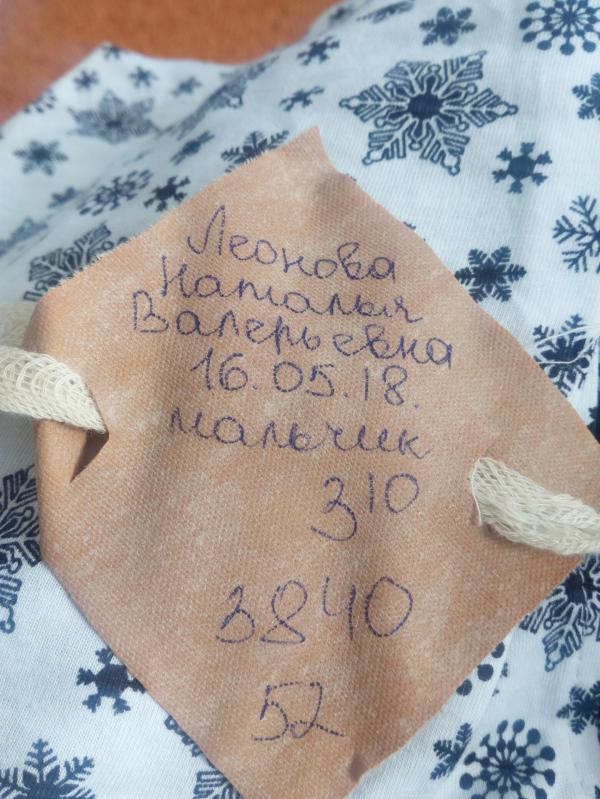 Леонова
Наталья
Валерьевна
16.05.18.
мальчик
3¹⁰
3840
52